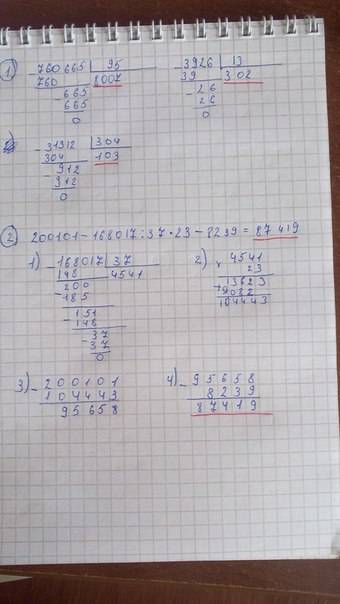 1) 760665 | 95      - 3926 | 13
760 | 8007      39 | 302
- 665      - 26
665      26
0      0
- 31312 | 304
304 | 103
- 912
912
0
2) 200101 - 168017 : 37 · 23 - 8239 = 87419
1) - 168017 | 37      2) × 4541
148 | 4541      23
200      + 13623
- 185      9082
- 151      104443
148
- 37
37
0
3) - 200101      4) - 95658
104443      8239
95658      87419